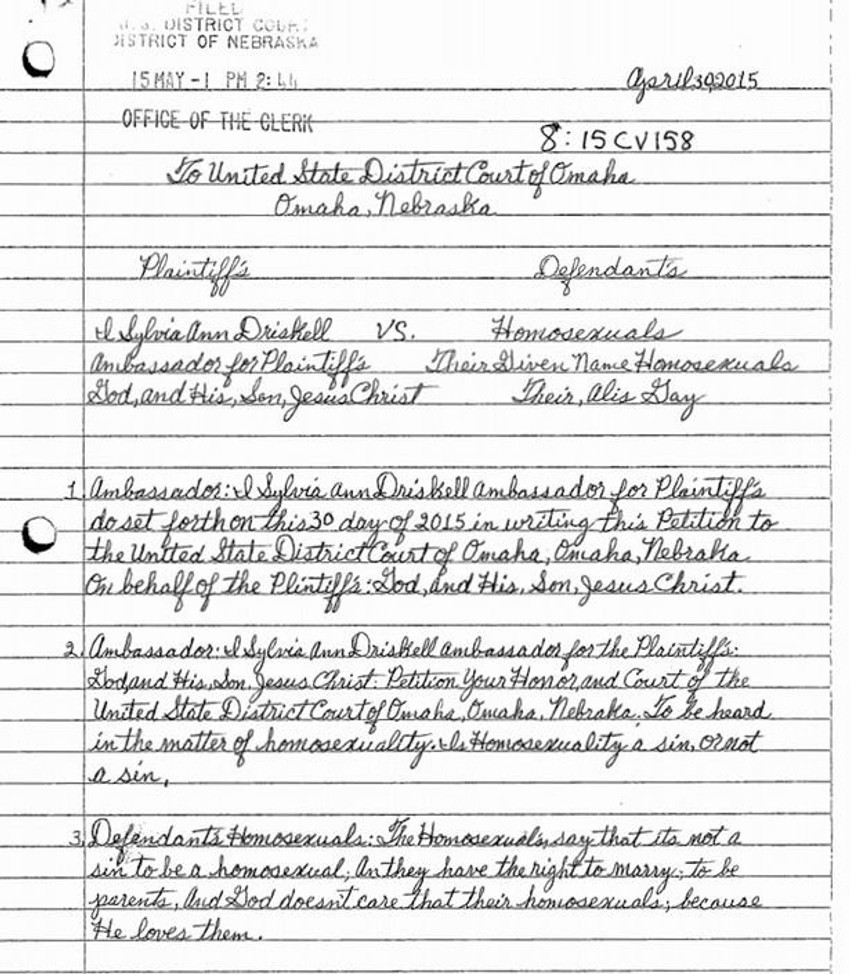 FILED
U.S. DISTRICT COURT
DISTRICT OF NEBRASKA
15 MAY -1 PM 2:44
OFFICE OF THE CLERK
April 30, 2015
8:15CV158
To United State District Court of Omaha
Omaha, Nebraska
Plaintiff's Defendant's
I Sylvia Ann Driskell VS. Homosexuals
Ambassador for Plaintiff's Their Given Name Homosexuals
God, and His, Son, Jesus Christ Their, Alis Gay
1. Ambassador: I Sylvia Ann Driskell Ambassador for Plaintiff's
do set forth on this 30 day of 2015 in writing this Petition to
the United State District Court of Omaha, Omaha, Nebraka.
On behalf of the Plintiff's: God, and His, Son, Jesus Christ.
2. Ambassador: I Sylvia Ann Driskell Ambassador for the Plaintiff's:
God, and His, Son, Jesus Christ: Petition Your Honor, and Court of the
United State District Court of Omaha, Omaha, Nebraka. To be heard
in the matter of homosexuality. Is Homosexuality a sin, or not
a sin,
3. Defendant's Homosexuals: The Homosexual's, say that its not a
sin to be a homosexual; An they have the right to marry; to be
parents, And God doesn't care that their homosexuals; because
He loves them.